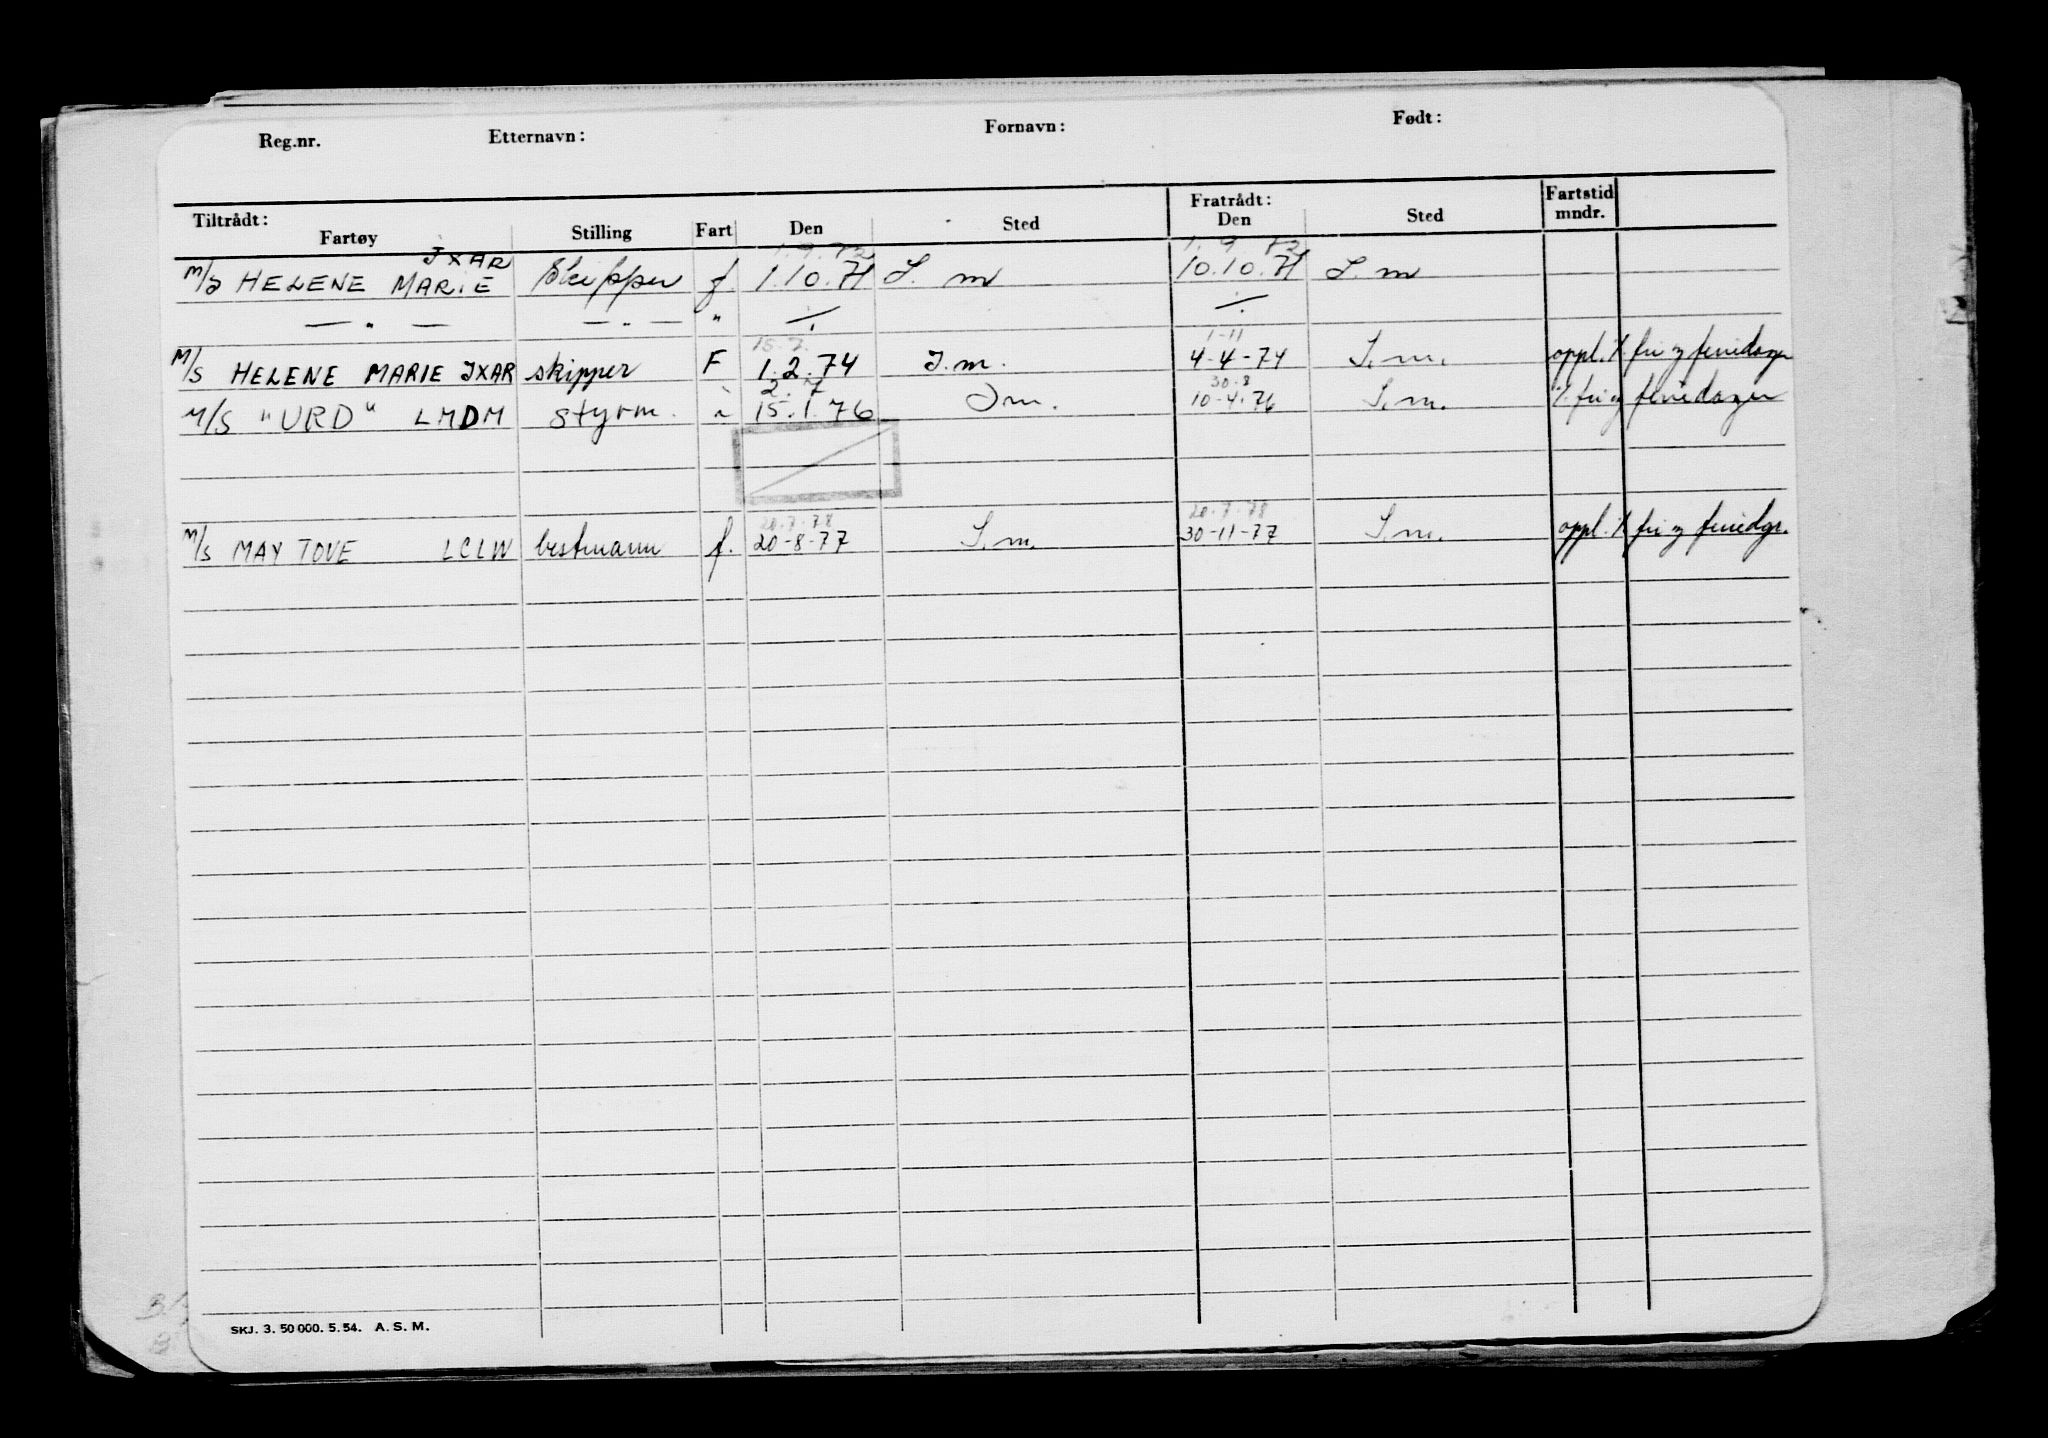 Reg.nr. Etternavn: Fornavn: Født:
Tiltrådt: Fratrådt: Fartstid
Fartøy Stilling Fart Den Sted Den Sted mndr.
JXAR 1.9.72 1.9.72
M/S HELENE MARIE Skipper f 1.10.71 S. m 10.10.71 S. m
— " — — " — " ./. ./.
15.7. 1-11
M/S HELENE MARIE JXAR skipper F 1.2.74 S.m. 4-4-74 S.m. oppl. % fri og feriedager
2. 7 30-8
M/S "URD" LMDM styrm. " 15.1.76 Sm. 10-4.76 S.m. % fri og feriedager
20.7.78 20.7.78
M/S MAY TOVE LCLW bestmann f. 20-8-77 S.m. 30-11-77 S.m. oppl. % fri og feriedgr.
SKJ. 3. 50 000. 5. 54. A. S. M.